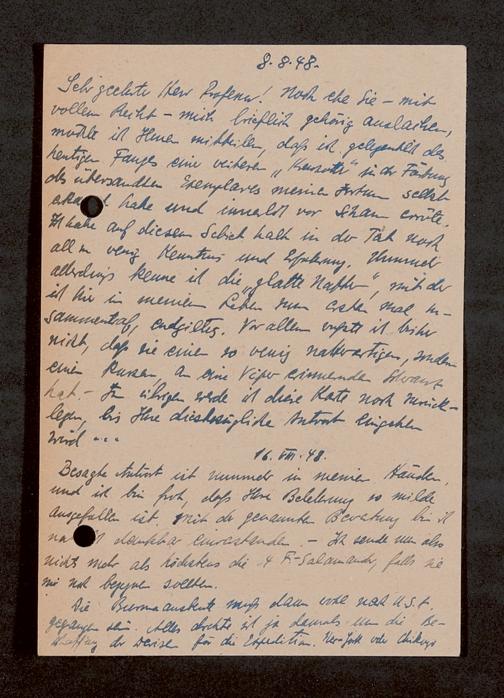 8.8.48.
Sehr geehrter Herr Professor! Noch ehe Sie – mit
vollem Recht – mich brieflich gehörig auslachen,
möchte ich Ihnen mitteilen, daß ich gelegentlich des
heutigen Fanges eines weiteren " " in der Färbung
des übersandten Exemplares meinen Irrtum selbst
erkannt habe und innerlich vor Scham erröte.
Ich habe auf diesem Gebiet halt in der Tat noch
all zu wenig Kenntnis und Erfahrung. Nunmehr
allerdings kenne ich die "glatte Natter", mit der
ich hier in meinem Leben zum ersten mal zu-
sammentraf, endgiltig. Vor allem wußte ich bisher
nicht, daß sie einen so wenig natterartigen, sondern
einen kurzen, an eine Viper erinnernden Schwanz
hat. – Im übrigen werde ich diese Karte noch zurück-
legen, bis Ihre diesbezügliche Antwort eingehen
wird ...
16. VIII. 48.
Besagte Antwort ist nunmehr in meinen Händen,
und ich bin froh, daß Ihre Belehrung so milde
ausgefallen ist. Mit der genannten bin ich
dankbar einverstanden. – Ich sende nun also
nicht mehr als höchstens die 4 F.-Salamander, falls sie
mir noch begegnen sollten.
Die muß dann wohl nach U.S.A.
gegangen sein. Alles drehte sich ja damals um die Be-
schaffung der Devisen für die Expedition. New-York oder Chikago